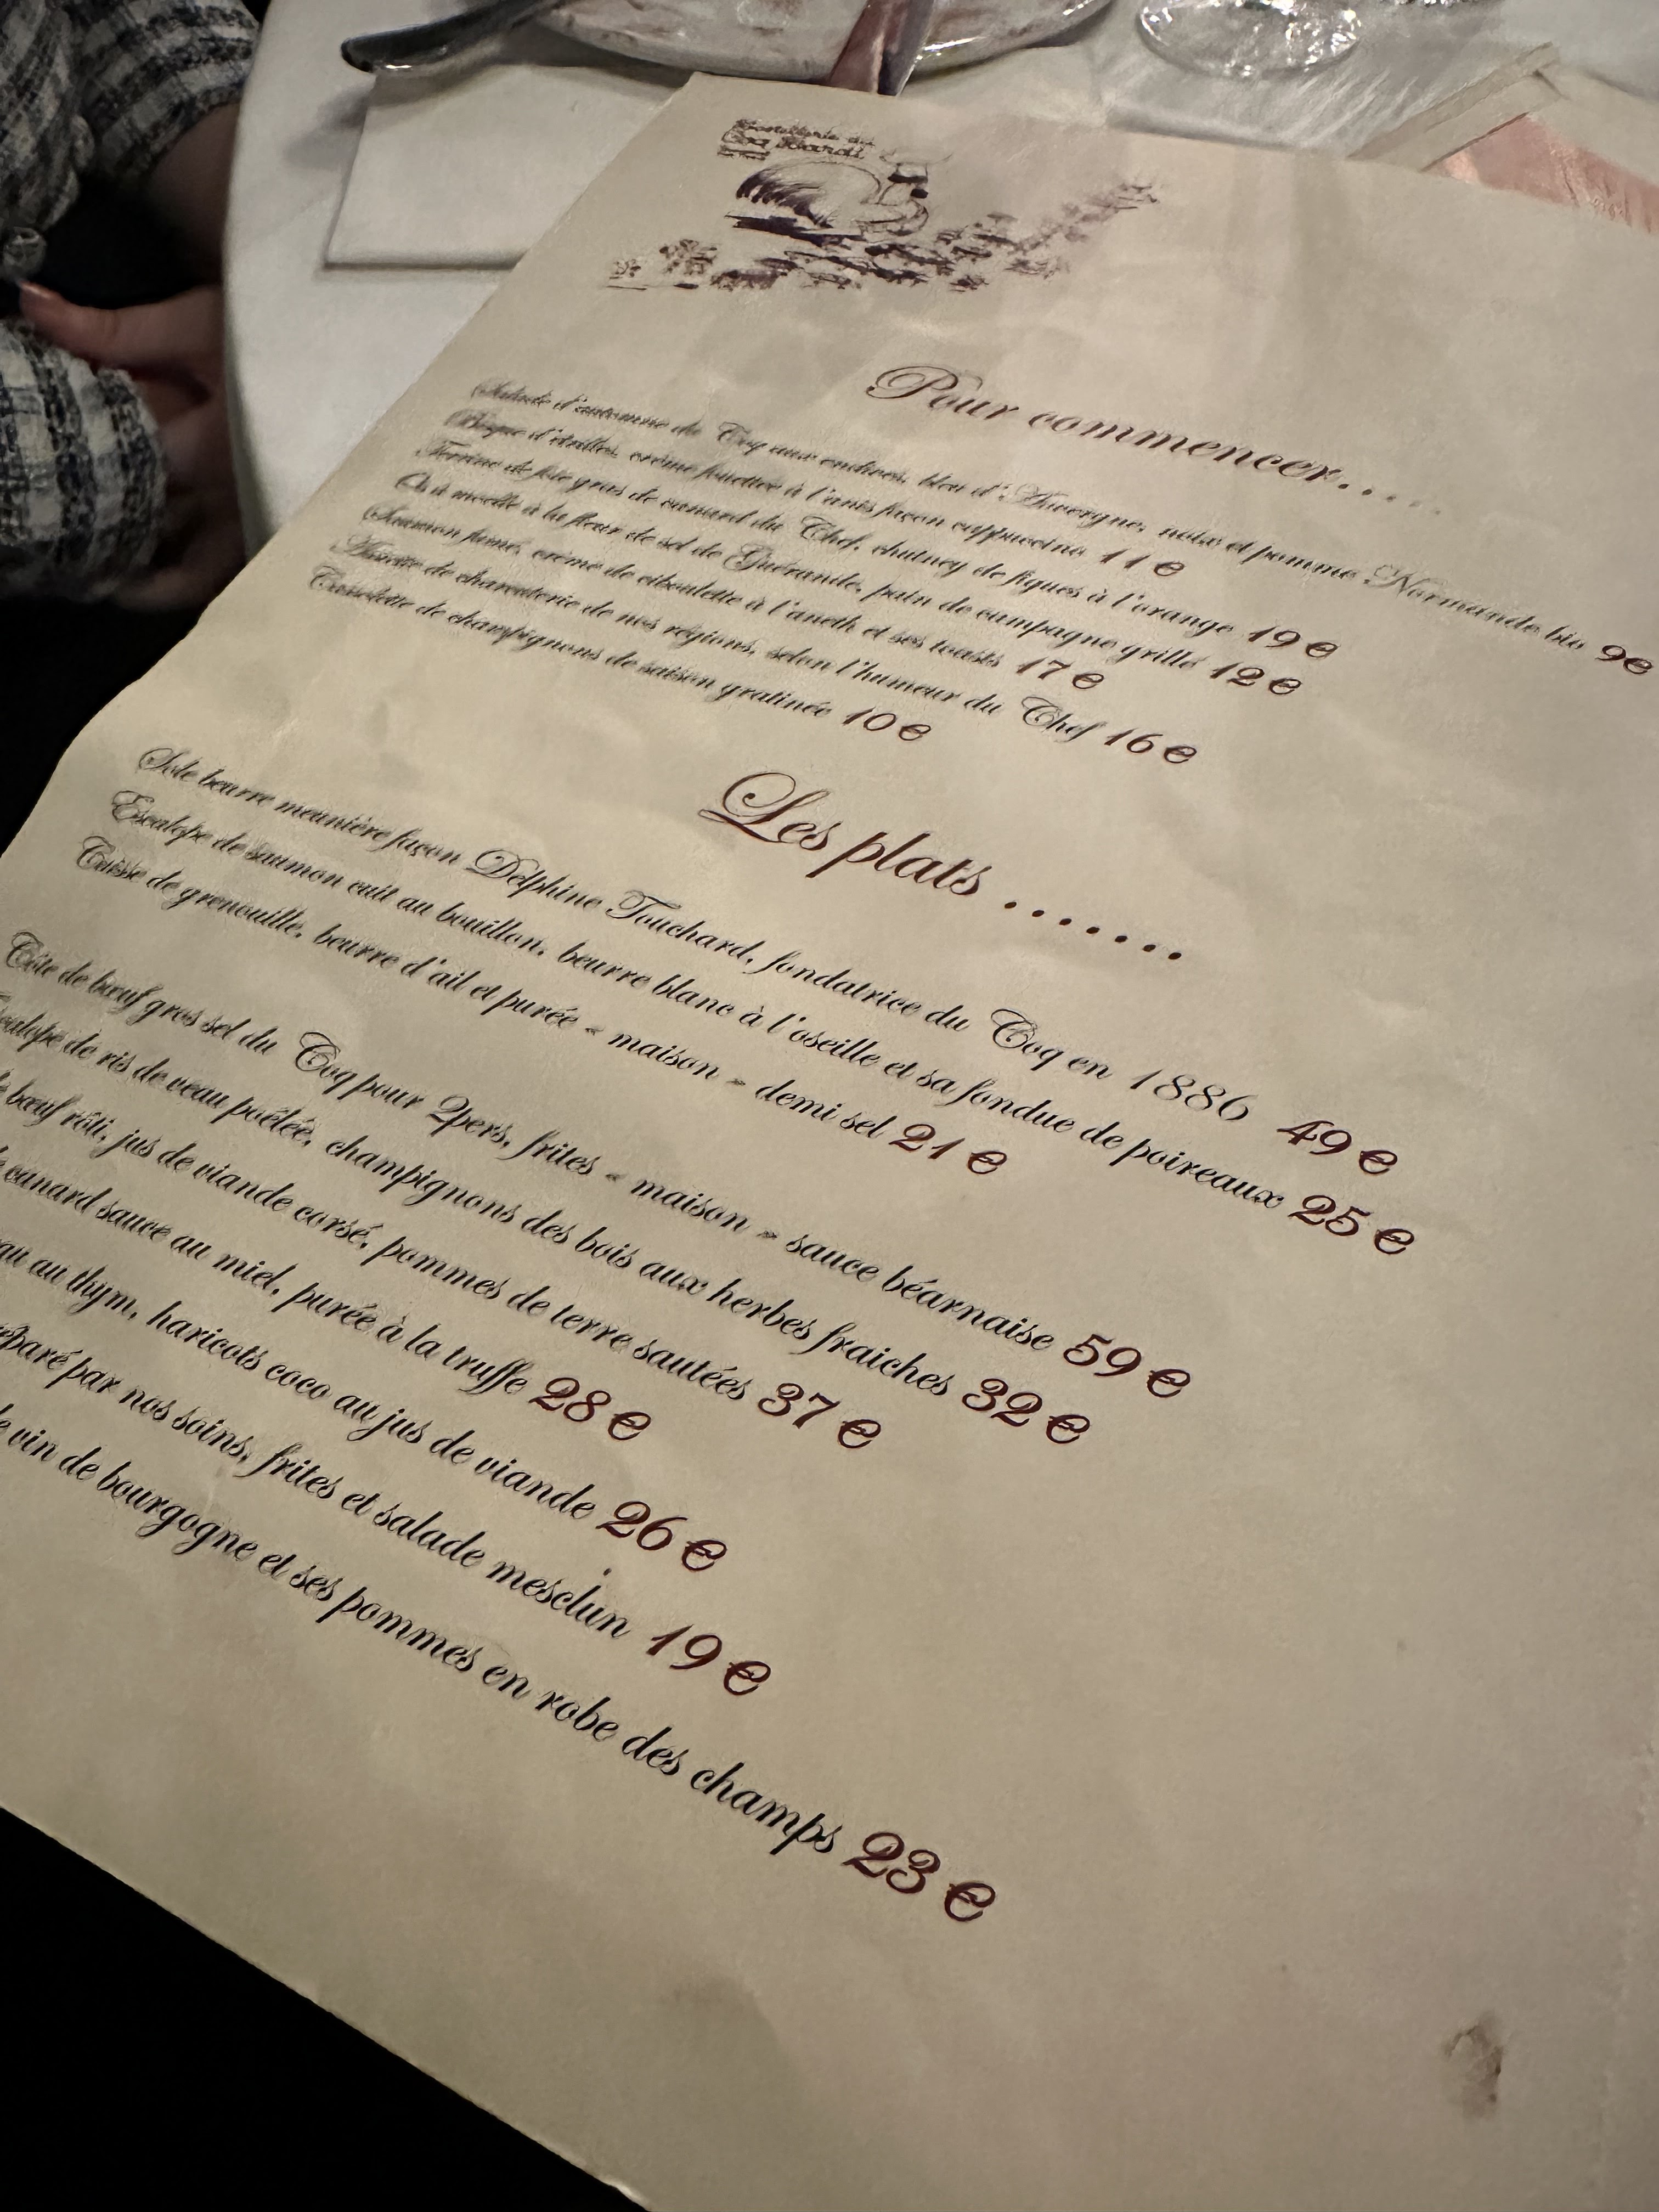 Hostellerie du
Coq Hardi
Pour commencer.....
Salade d'automne du Coq aux endives, bleu d'Auvergne, noix et pomme Normande bio 9€
Bisque d'étrilles, crème fouettée à l'anis façon cappuccino 11€
Terrine de foie gras de canard du Chef, chutney de figues à l'orange 19€
Os à moelle à la fleur de sel de Guérande, pain de campagne grillé 12€
Saumon fumé, crème de ciboulette à l'aneth et ses toasts 17€
Assiette de charcuterie de nos régions, selon l'humeur du Chef 16€
Cassolette de champignons de saison gratinée 10€
Les plats .......
Sole beurre meunière façon Delphine Touchard, fondatrice du Coq en 1886 49€
Escalope de saumon cuit au bouillon, beurre blanc à l'oseille et sa fondue de poireaux 25€
Cuisse de grenouille, beurre d'ail et purée « maison » demi sel 21€
Côte de bœuf gros sel du Coq pour 2pers, frites « maison » sauce béarnaise 59€
de ris de veau poêlée, champignons des bois aux herbes fraiches 32€
bœuf rôti, jus de viande corsé, pommes de terre sautées 37€
canard sauce au miel, purée à la truffe 28€
au thym, haricots coco au jus de viande 26€
par nos soins, frites et salade mesclun 19€
vin de bourgogne et ses pommes en robe des champs 23€